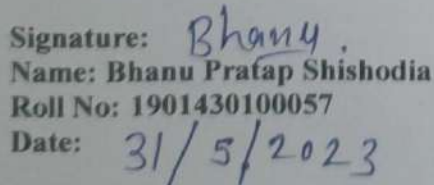 Signature: Bhanu.
Name: Bhanu Pratap Shishodia
Roll No: 1901430100057
Date: 31/5/2023